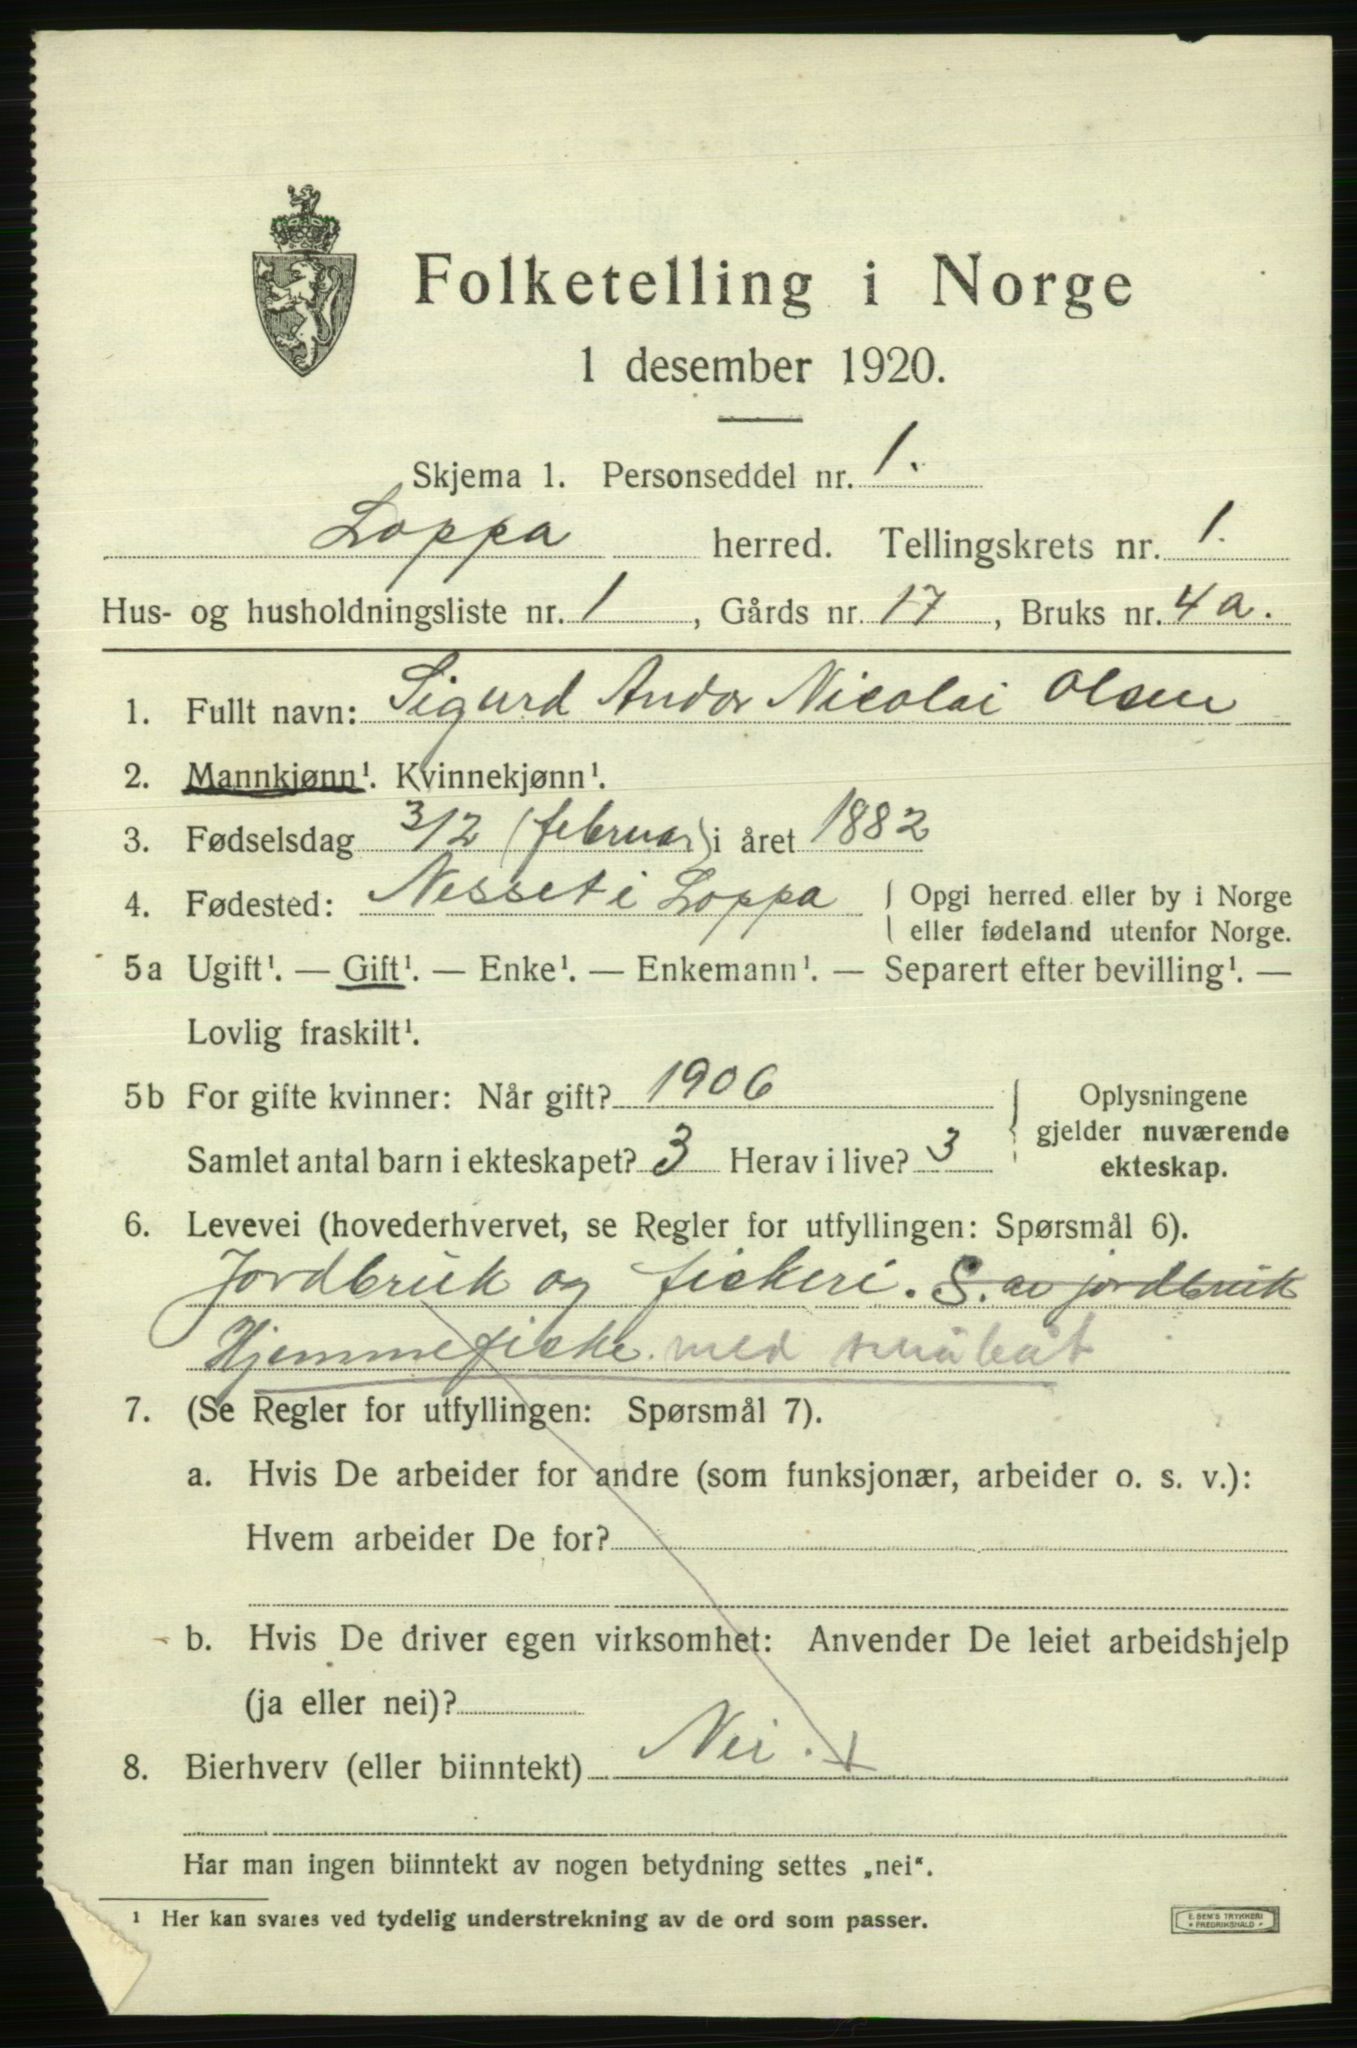 Folketelling i Norge
1 desember 1920.
Skjema 1. Personseddel nr. 1.
Loppa herred. Tellingskrets nr. 1.
Hus- og husholdningsliste nr. 1, Gårds nr. 17, Bruks nr. 4a.
1. Fullt navn: Sigurd Andor Nicolai Olsen
2. Mannkjønn¹. Kvinnekjønn¹.
3. Fødselsdag 3/2 (februar) i året 1882
4. Fødested: Nesset i Loppa { Opgi herred eller by i Norge
eller fødeland utenfor Norge.
5a Ugift¹. — Gift¹. — Enke¹. — Enkemann¹. — Separert efter bevilling¹. —
Lovlig fraskilt¹.
5b For gifte kvinner: Når gift? 1906
Samlet antal barn i ekteskapet? 3 Herav i live? 3
Oplysningene
gjelder nuværende
ekteskap.
6. Levevei (hovederhvervet, se Regler for utfyllingen: Spørsmål 6).
Jordbruk og fiskeri. S. av jordbruk
Hjemmefiske. med småbåt
7. (Se Regler for utfyllingen: Spørsmål 7).
a. Hvis De arbeider for andre (som funksjonær, arbeider o. s. v.):
Hvem arbeider De for?
b. Hvis De driver egen virksomhet: Anvender De leiet arbeidshjelp
(ja eller nei)?
8. Bierhverv (eller biinntekt) Nei.
Har man ingen biinntekt av nogen betydning settes „nei“.
¹ Her kan svares ved tydelig understrekning av de ord som passer.
E. SEM'S TRYKKERI
* FREDRIKSHALD *